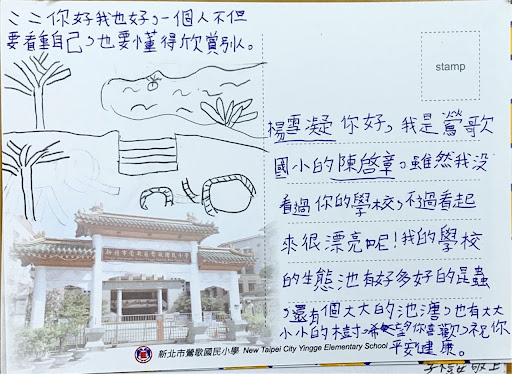 ミミ你好我也好,一個人不但
要看重自己,也要懂得欣賞別人。
stamp
楊雪凝你好,我是鶯歌
國小的陳啓章,雖然我沒
看過你的學校,不過看起
來很漂亮呢!我的學校
的生態池也有好多好的昆蟲
,還有個大大的池塘,也有大大
小小的樹,你喜歡,祝你
平安健康。
敬上
新北市鶯歌國民小學 New Taipei City Yingge Elementary School